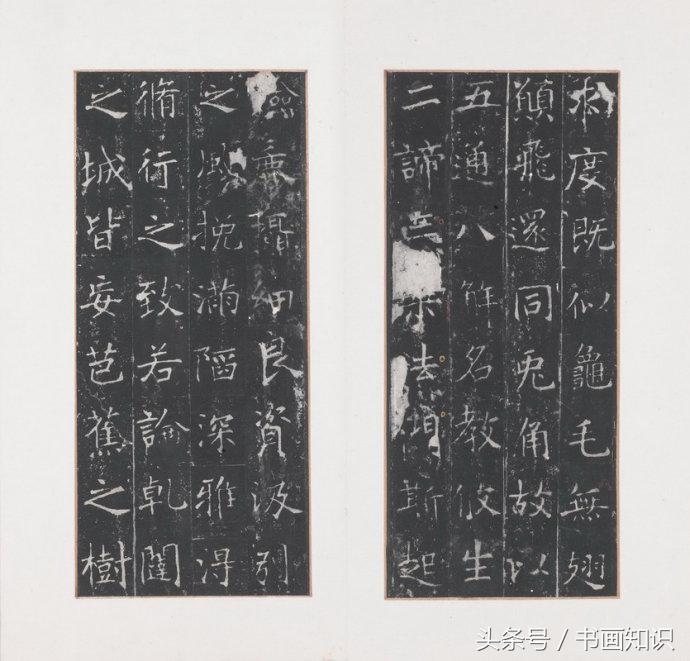 求度既似龜毛無翅
願飛還同兔角故以
五通八解名教攸生
二諦三乘法門斯起
攝細良資汲引
之風挽滿陷深雅得
脩行之致若論乹闥
之城皆妄芭蕉之樹
头条号 / 书画知识